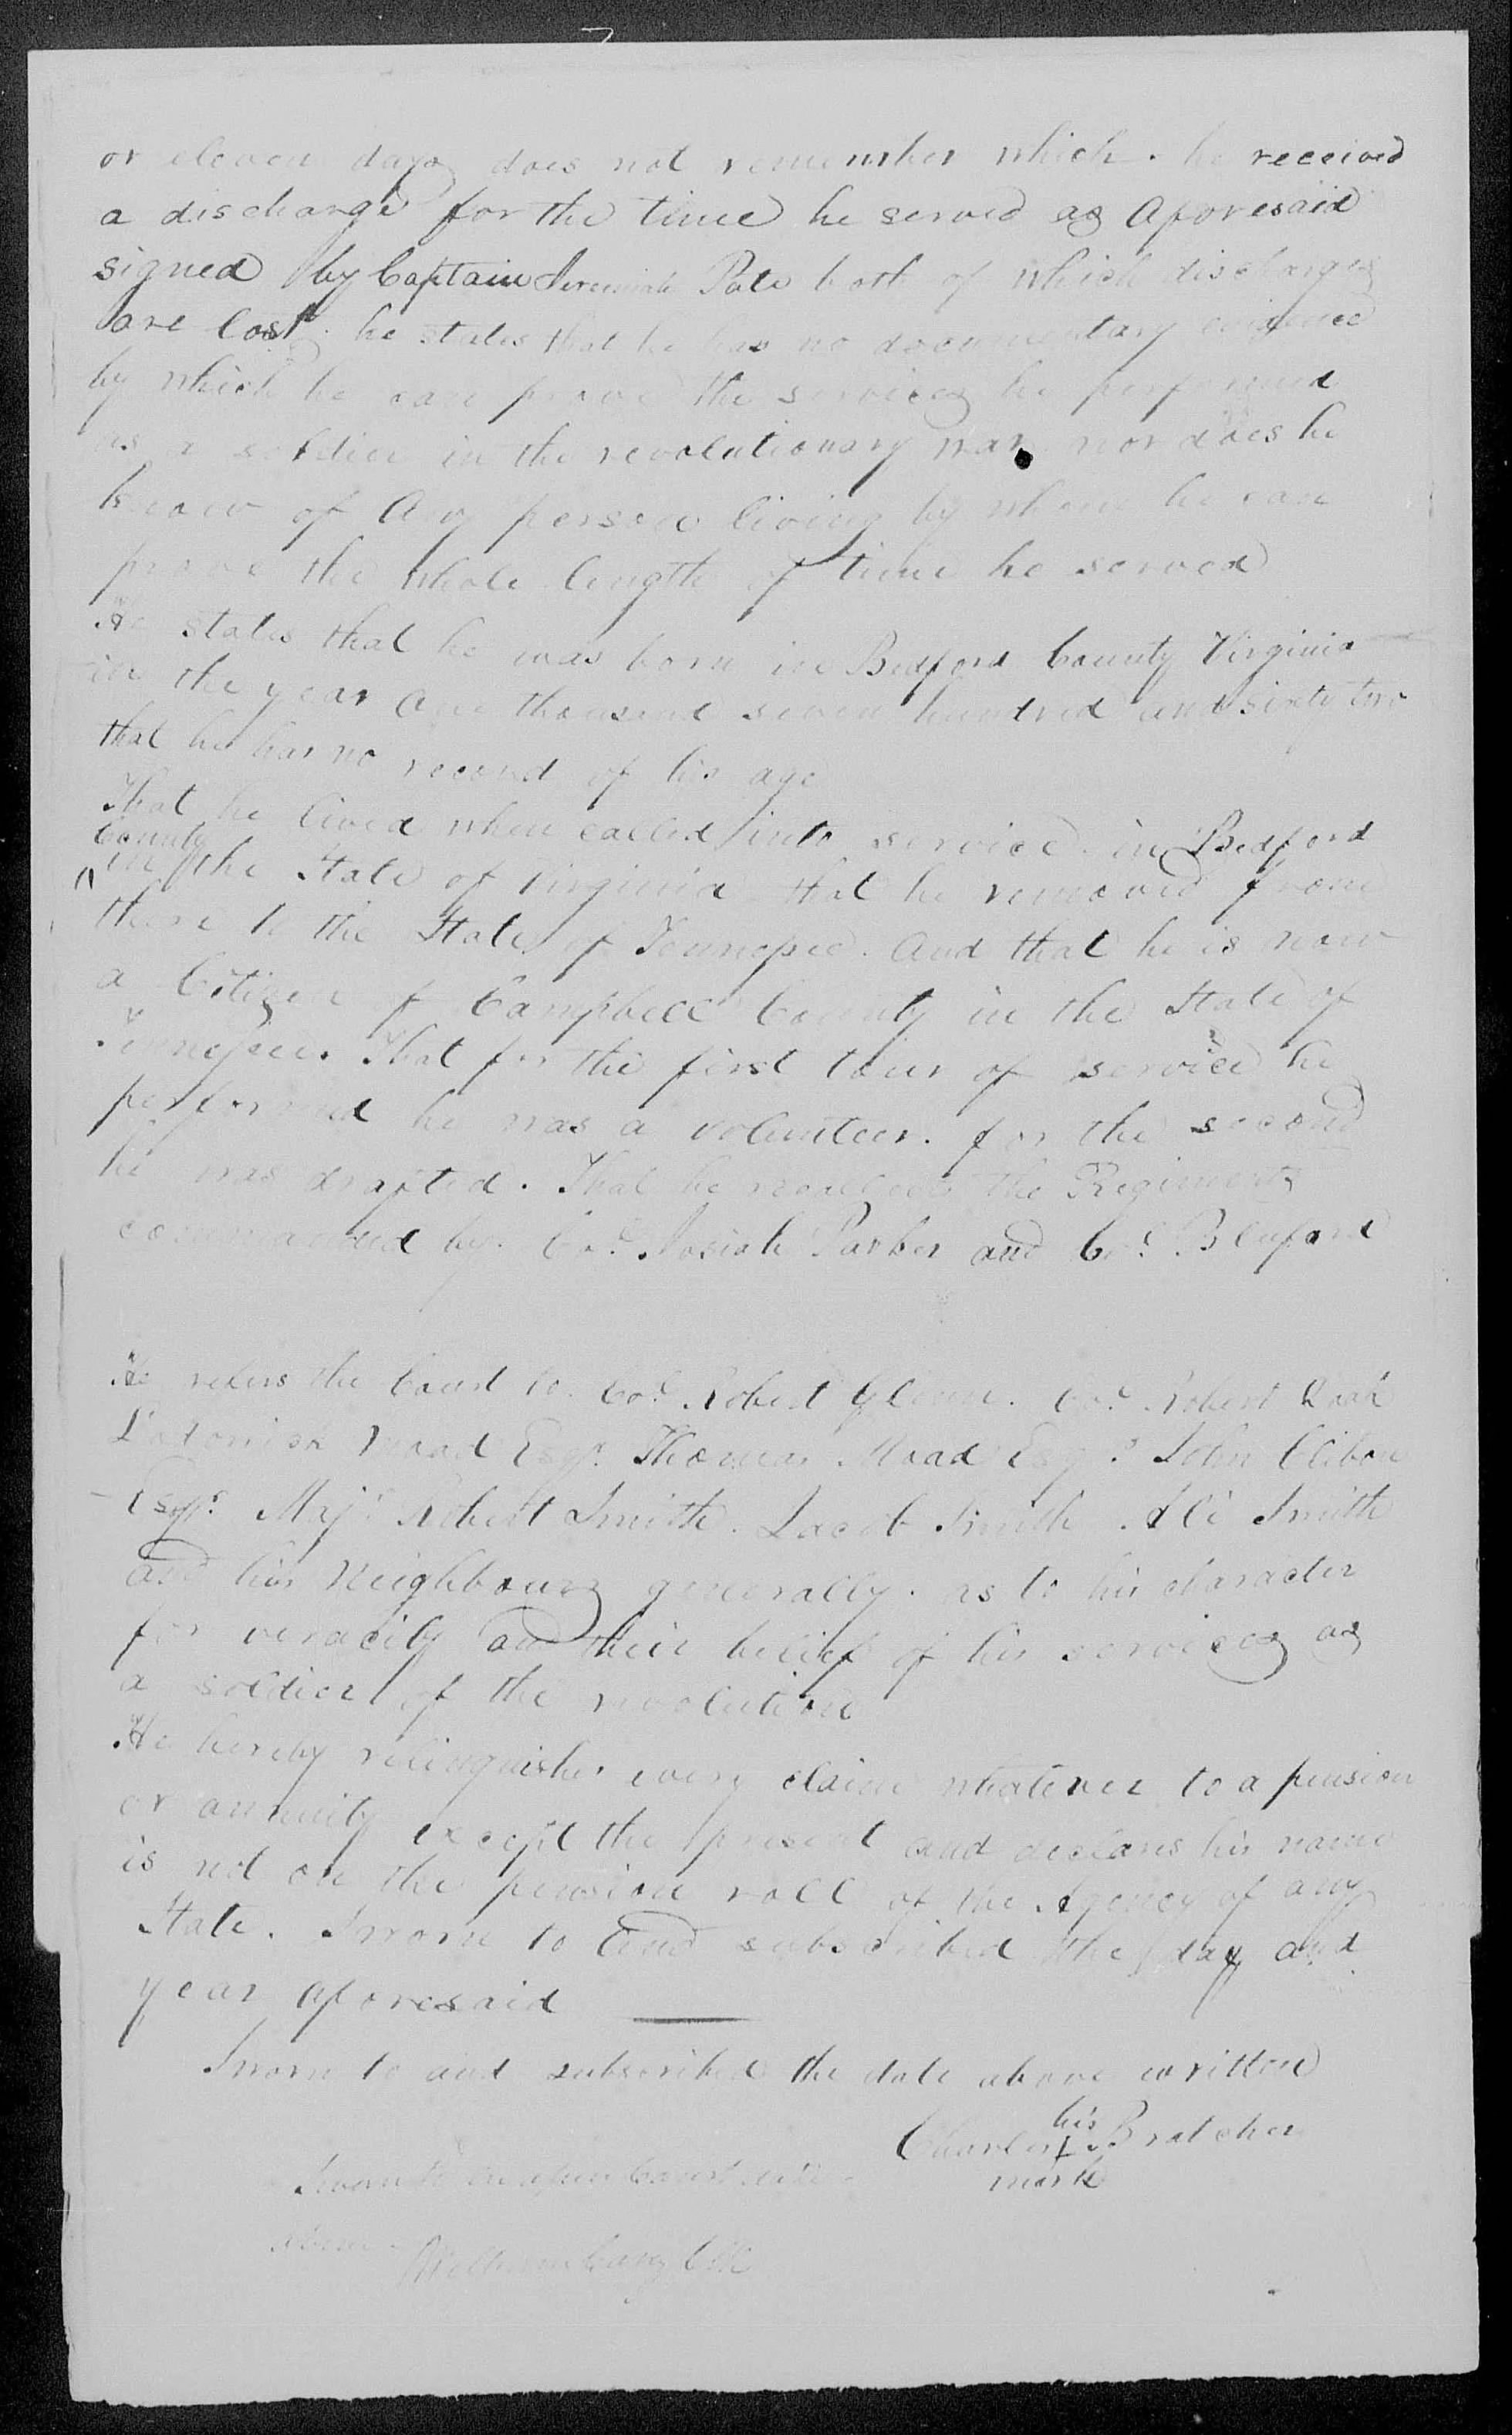 or eleven days does not remember which. he received
a discharge for the time he served as Aforesaid
signed by Captain Jeremiah Pate both of which discharges
are lost. he states that he has no documentary evidence
by which he can prove the services he performed
as a soldier in the revolutionary war nor does he
know of Any person living by whom he can
prove the whole length of time he served
He states that he was born in Bedford County Virginia
in the year One thousand seven hundred and sixty two
that he has no record of his age
That he lived when called into service in Bedford
County
in the State of Virginia that he removed from
there to the State of Tennessee. And that he is now
a Citizen of Campbell County in the State of
Tennessee. That for the first tour of service he
performed he was a volunteer. for the second
he was drafted. That he recollects the Regiments
commanded by Col. Josiah Parker and Col. Bluford
He refers the Court to Col. Robert Glenn. Col. Robert
Esqr. Thomas Esqr. John
Esqr. Majr. Robert Smith. Jacob Smith. Smith
and his Neighbours generally. as to his character
for veracity and their belief of his services as
a soldier of the revolution
He hereby relinquishes every claim whatever to a pension
or annuity except the present and declares his name
is not on the pension roll of the Agency of any
State. Sworn to and subscribed the day and
year aforesaid
Sworn to and subscribed the date above written
his
Charles + Bratcher
mark
Sworn to in open Court date
above